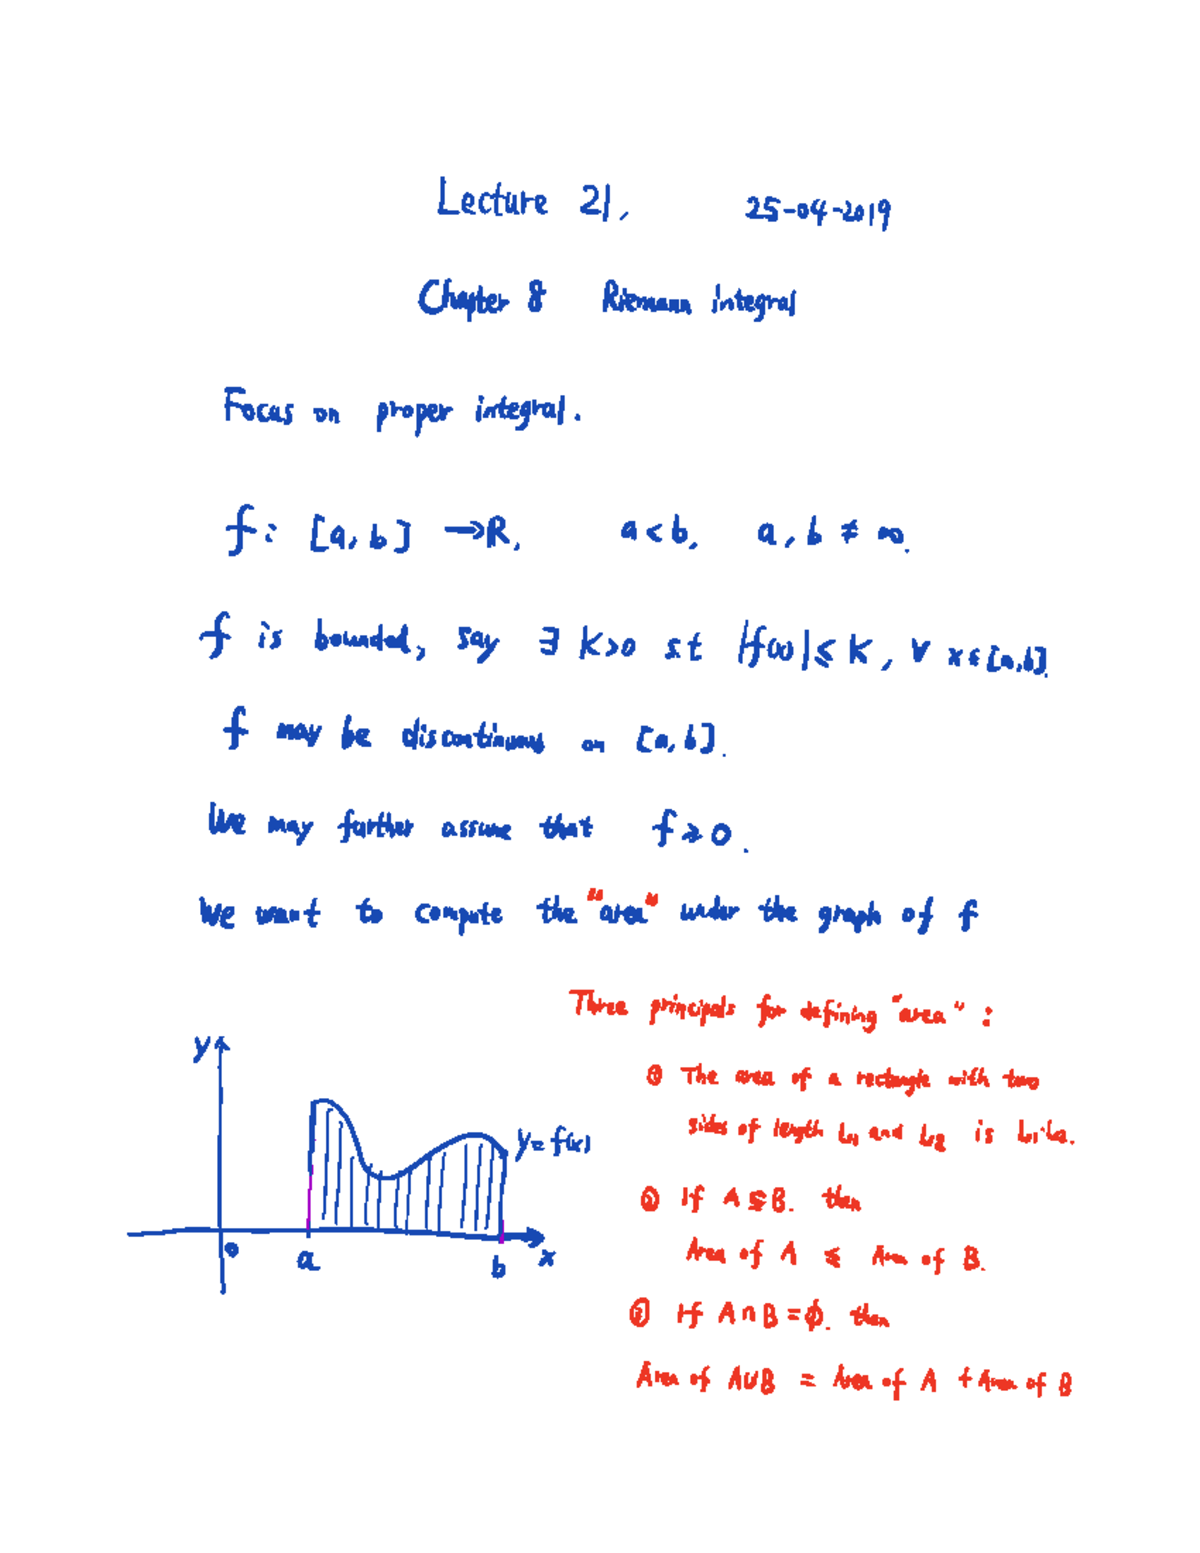 Lecture 21, 25-04-2019
Chapter 8 Riemann integral
Focus on proper integral.
f: [a, b] → R, a < b, a, b ≠ ∞.
f is bounded, say ∃ K>0 s.t |f(x)| ≤ K, ∀ x ∈ [a,b].
f may be discontinuous on [a, b].
We may further assume that f ≥ 0.
We want to compute the "area" under the graph of f
Three principals for defining "area" :
① The area of a rectangle with two
sides of length L1 and L2 is L1·L2.
② If A ⊆ B. then
Area of A ≤ Area of B.
③ If A ∩ B = ∅. then
Area of A∪B = Area of A + Area of B
y
y = f(x)
0
a
b
x